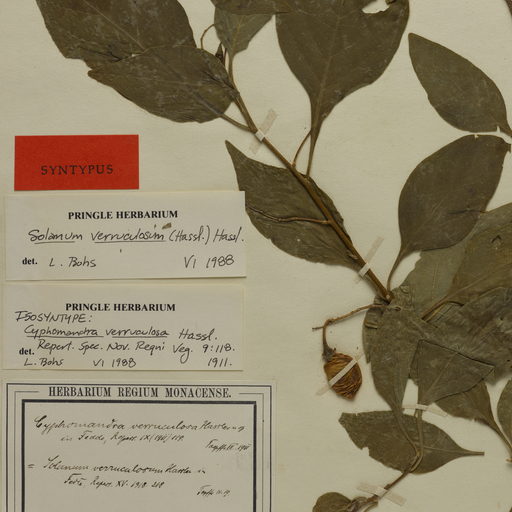 SYNTYPUS
PRINGLE HERBARIUM
Solanum verruculosum (Hassl.) Hassl.
det. L. Bohs VI 1988
PRINGLE HERBARIUM
ISOSYNTYPE:
Cyphomandra verruculosa Hassl.
Repert. Spec. Nov. Regni Veg. 9:118.
det. L. Bohs VI 1988 1911.
HERBARIUM REGIUM MONACENSE.
Cyphomandra verruculosa Hassler
in Fedde, Repert. IX (1911) 118
= Solanum verruculosum Hassler in
Fedde Repert. XV. 1918. 218